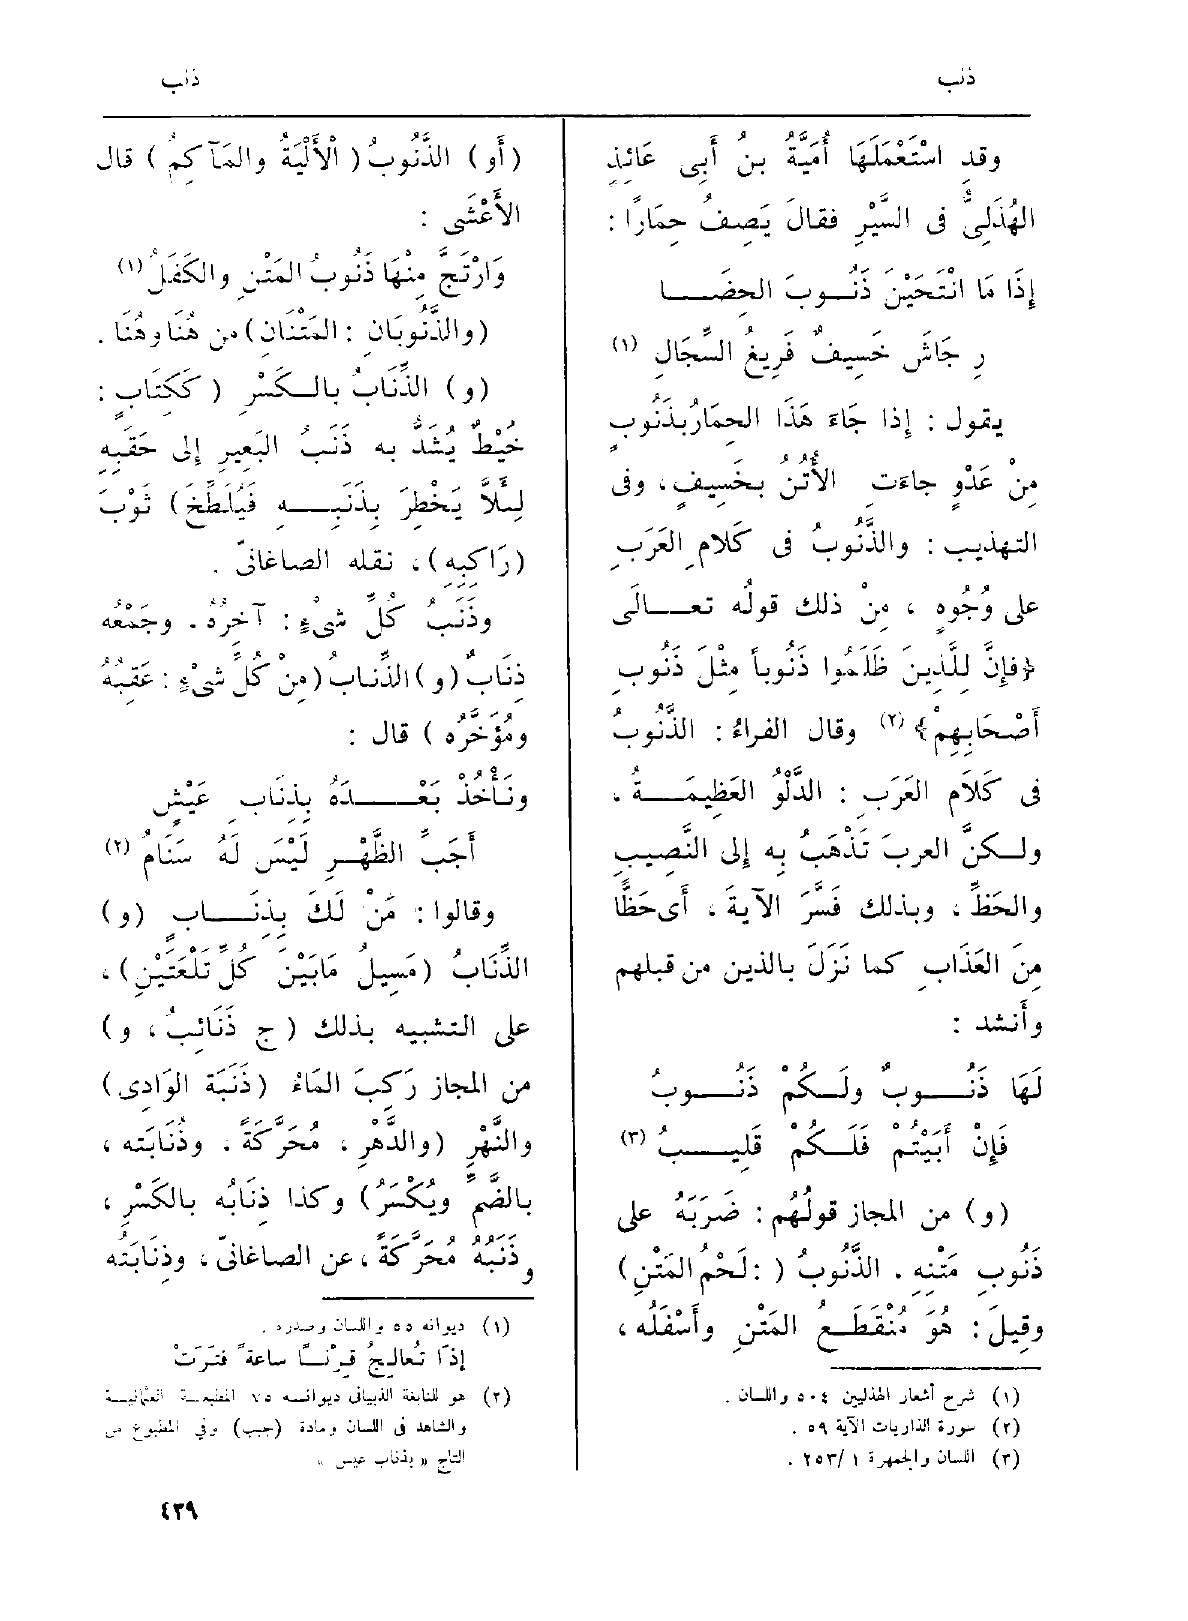 ذنب
ذنب
وقد اسْتَعْمَلَهَا أُمَيَّةُ بنُ أَبِى عَائِذٍ
الهُذَلِىُّ فى السَّيْرِ فقالَ يَصِفُ حِمَارًا :
إِذَا مَا انْتَحَيْنَ ذَنُوبَ الحِضَا
رِ جَاشَ خَسِيفٌ فَرِيغُ السِّجَالِ (١)
يقول : إذا جَاءَ هَذَا الحِمَارُ بذَنُوبٍ
مِنْ عَدْوٍ جاءَت الأُتُنُ بخَسِيفٍ ، وفى
التهذيب : والذَّنُوبُ فى كَلامِ العَرَبِ
على وُجُوهٍ ، مِنْ ذلك قولُه تعالَى
﴿فَإِنَّ لِلَّذِينَ ظَلَمُوا ذَنُوباً مِثْلَ ذَنُوبِ
أَصْحَابِهِمْ﴾ (٢) وقال الفراءُ : الذَّنُوبُ
فى كَلَامِ العَرَبِ : الدَّلْوُ العَظِيمَةُ ،
ولكنَّ العربَ تَذْهَبُ به إلى النَّصِيبِ
والحَظِّ ، وبذلك فَسَّرَ الآيةَ ، أَى حَظًّا
مِنَ العَذَابِ كما نَزَلَ بالذين من قبلهم
وأنشد :
لَهَا ذَنُوبٌ ولَكُمْ ذَنُوبُ
فَإِنْ أَبَيْتُمْ فَلَكُمْ قَلِيبُ (٣)
(و) من المجاز قولُهُم : ضَرَبَهُ على
ذَنُوبِ مَتْنِهِ . الذَّنُوبُ ( : لَحْمُ المَتْنِ)
وقِيلَ : هُوَ مُنْقَطَعُ المَتْنِ وأَسْفَلُه ،
(١) شرح أشعار الهذليين ٥٠٤ واللسان .
(٢) سورة الذاريات الآية ٥٩ .
(٣) اللسان والجمهرة ١ /٢٥٣ .
(أَو) الذَّنُوبُ ( الأَلْيَةُ والمَآكِمُ ) قال
الأَعْشَى :
وَارْتَجَّ مِنْهَا ذَنُوبُ المَتْنِ والكَفَلُ (١)
(والذَّنُوبَانِ : المَتْنَانِ) من هُنَا وهُنَا .
(و) الذِّنَابُ بالكَسْرِ ( كَكِتَابٍ :
خَيْطٌ يُشَدُّ به ذَنَبُ البَعِيرِ إلى حَقَبِهِ
لِئَلاَّ يَخْطِرَ بِذَنَبِهِ فَيُلَطِّخَ) ثَوْبَ
(رَاكِبِهِ) ، نقله الصاغانىّ .
وذَنَبُ كُلِّ شىْءٍ : آخِرُهُ . وجَمْعُه
ذِنَابٌ (و) الذِّنابُ (مِنْ كُلِّ شىْءٍ : عَقِبُهُ
ومُؤَخَّرُه ) قال :
ونَأْخُذْ بَعْدَهُ بِذِنَابِ عَيْشٍ
أَجَبِّ الظَّهْرِ لَيْسَ لَهُ سَنَامُ (٢)
وقالوا : مَنْ لَكَ بِذِنَابٍ (و)
الذِّنَابُ (مَسِيلُ مَابَيْنَ كُلِّ تَلْعَتَيْنِ) ،
على التشبيه بذلك ( ج ذَنَائبُ ، و)
من المجاز رَكِبَ المَاءُ (ذَنَبَةَ الوَادِى)
والنَّهْرِ (والدَّهْرِ ، مُحَرَّكَةً ، وذُنَابَتَه ،
بالضَّمِّ ويُكْسَرُ) وكذا ذِنَابُه بالكَسْرِ ،
وذَنَبُهُ مُحَرَّكَةً ، عن الصاغانىّ ، وذِنَابَتُه
(١) ديوانه ٥٥ واللسان وصدره .
إذَا تُعالِجُ قِرْنًا ساعةً فَتَرَتْ
(٢) هو للنابغة الذبيانى ديوانه ٧٥ المطبعة العثمانية
والشاهد فى اللسان ومادة (جبب) وفي المطبوع من
التاج « بذناب عيس »
٤٣٩